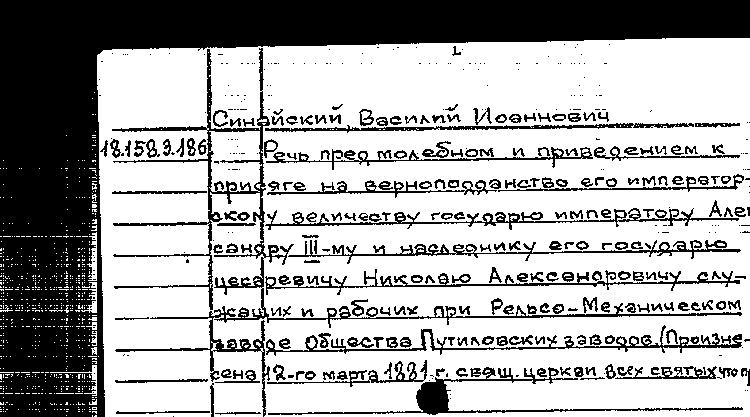 Синайский, Василий Иоаннович
18.158.3.186 Речь пред молебном и приведением к
присяге на верноподданство его император-
скому величеству государю императору Алек
сандру III-му и наследнику его государю
цесаревичу Николаю Александровичу слу-
жащих и рабочих при Рельсо-Механическом
заводе Общества Путиловских заводов. (Произне-
сена 12-го марта 1881 г. свящ. церкви всех святых что